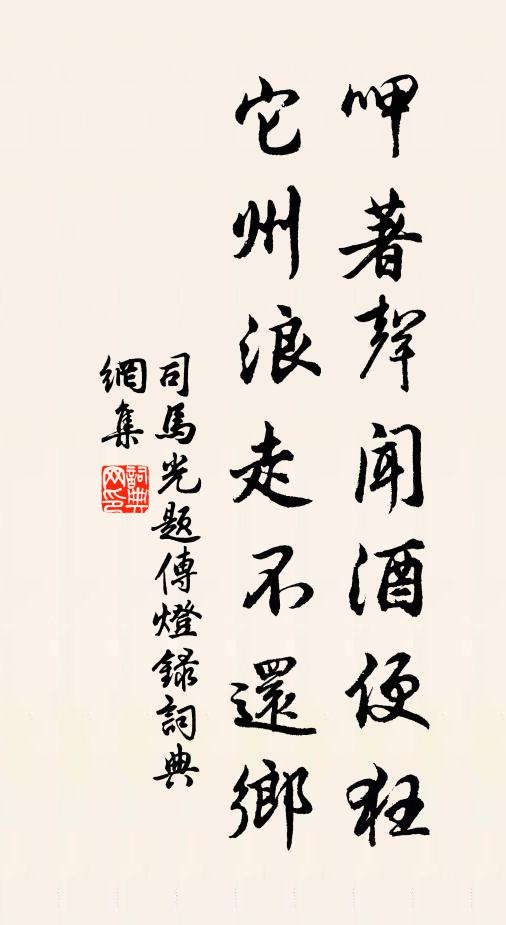 呷著聲聞酒便狂
它州浪走不還鄉
司馬光題傳燈録詞典
網集
詞典網印